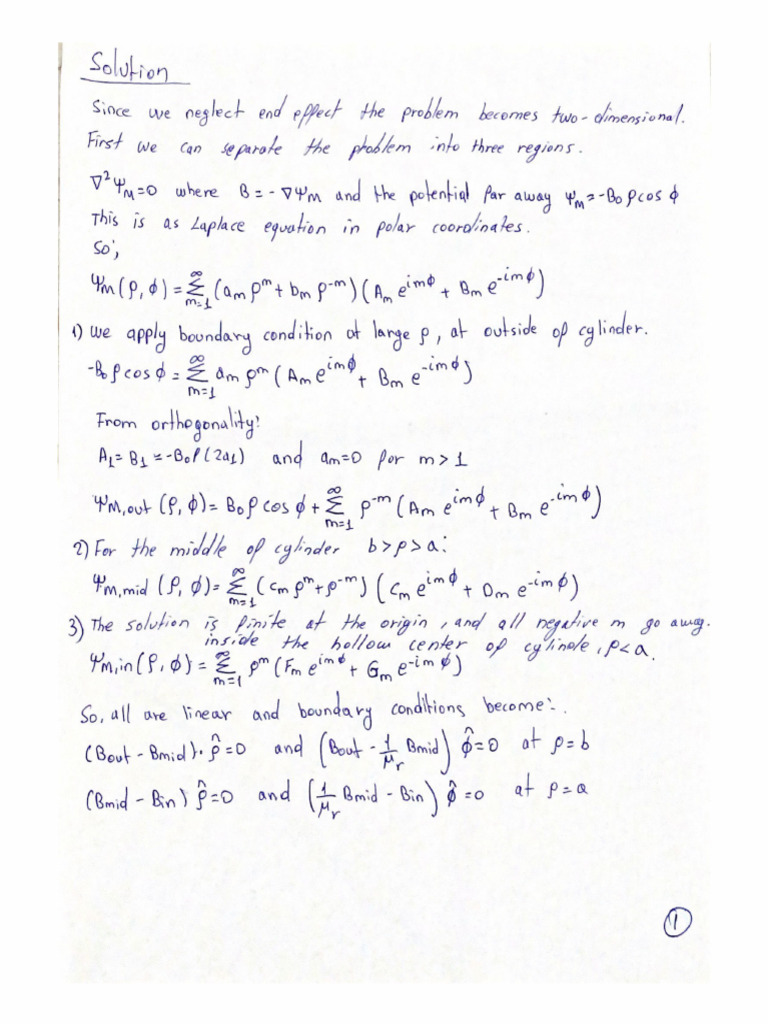 Solution
Since we neglect end effect the problem becomes two-dimensional.
First we can separate the ptoblem into three regions.
∇²Ψ_M=0 where B=-∇Ψ_M and the potential far away Ψ_M=-B₀ρcos ϕ
This is as Laplace equation in polar coordinates.
So;
Ψ_M(ρ,ϕ) = Σ_{m=1}^{∞} (a_m ρ^m + b_m ρ^{-m}) (A_m e^{imϕ} + B_m e^{-imϕ})
1) We apply boundary condition at large ρ, at outside of cylinder.
-B₀ρcosϕ = Σ_{m=1}^{∞} a_m ρ^m (A_m e^{imϕ} + B_m e^{-imϕ})
From orthogonality:
A₁=B₁=-B₀ρ(2a₁) and a_m=0 for m>1
Ψ_{M,out}(ρ,ϕ)=B₀ρcosϕ + Σ_{m=1}^{∞} ρ^{-m} (A_m e^{imϕ} + B_m e^{-imϕ})
2) For the middle of cylinder b>ρ>a:
Ψ_{M,mid}(ρ,ϕ)= Σ_{m=1}^{∞} (c_m ρ^m + ρ^{-m}) (C_m e^{imϕ} + D_m e^{-imϕ})
3) The solution is finite at the origin, and all negative m go away.
inside the hollow center of cylinde, ρ<a.
Ψ_{M,in}(ρ,ϕ) = Σ_{m=1}^{∞} ρ^m (F_m e^{imϕ} + G_m e^{-imϕ})
So, all are linear and boundary conditions become:.
(Bout - Bmid)·ρ̂=0 and (Bout - 1/μ_r Bmid) ϕ̂=0 at ρ=b
(Bmid - Bin) ρ̂=0 and (1/μ_r Bmid - Bin) ϕ̂=0 at ρ=a
1